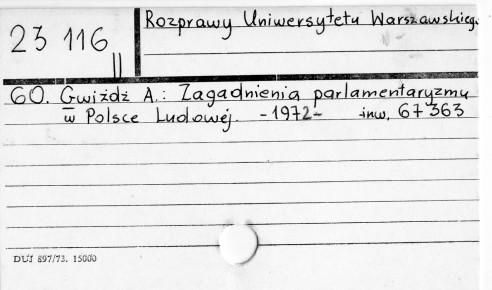 Rozprawy Uniwersytetu Warszawskieg.
23 116
II
60. Gwiżdż A.: Zagadnienia parlamentaryzmu
w Polsce Ludowej. -1972- inw. 67363
DUJ 897/73. 15000